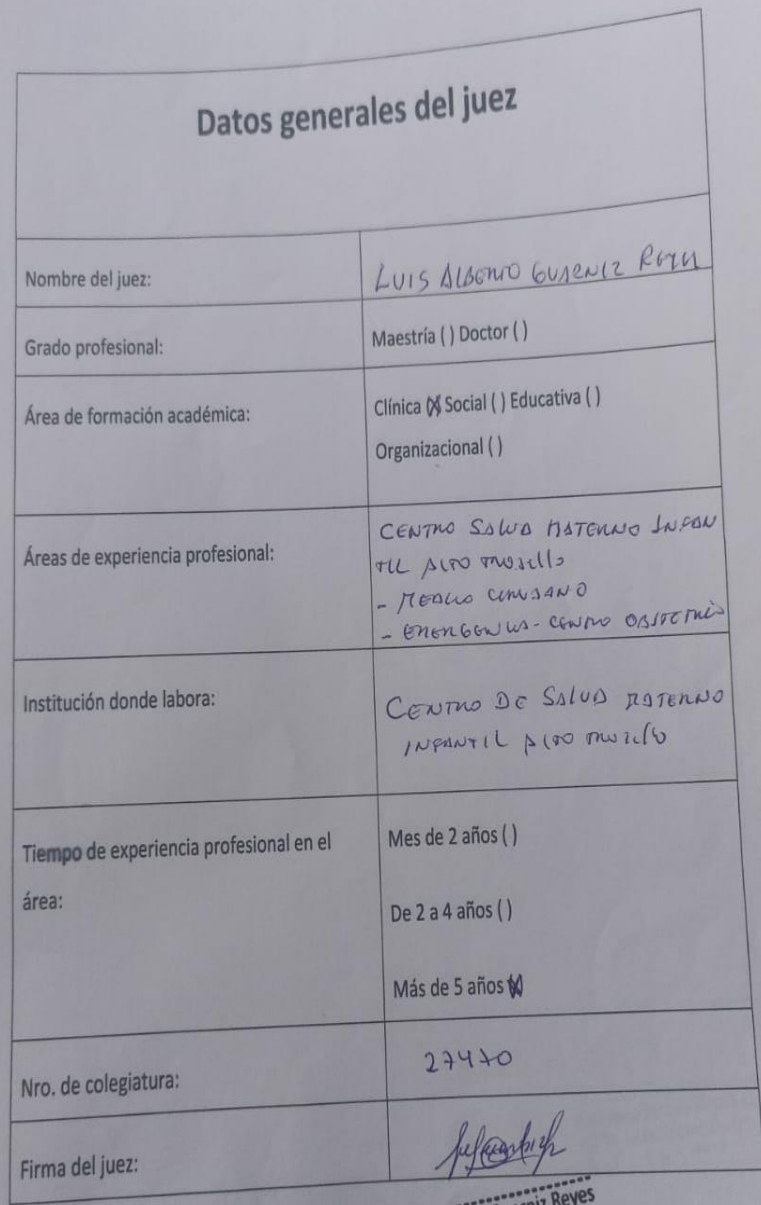 Datos generales del juez
Nombre del juez:
LUIS ALBERTO GUARNIZ REYES
Grado profesional:
Maestría ( ) Doctor ( )
Área de formación académica:
Clínica (X) Social ( ) Educativa ( )
Organizacional ( )
Áreas de experiencia profesional:
CENTRO SALUD MATERNO INFAN
TIL ALTO TRUJILLO
- MEDICO CIRUJANO
- EMERGENCIAS - CENTRO OBSTETRICO
Institución donde labora:
CENTRO DE SALUD MATERNO
INFANTIL ALTO TRUJILLO
Tiempo de experiencia profesional en el
área:
Mes de 2 años ( )
De 2 a 4 años ( )
Más de 5 años (X)
Nro. de colegiatura:
27470
Firma del juez:
Reyes